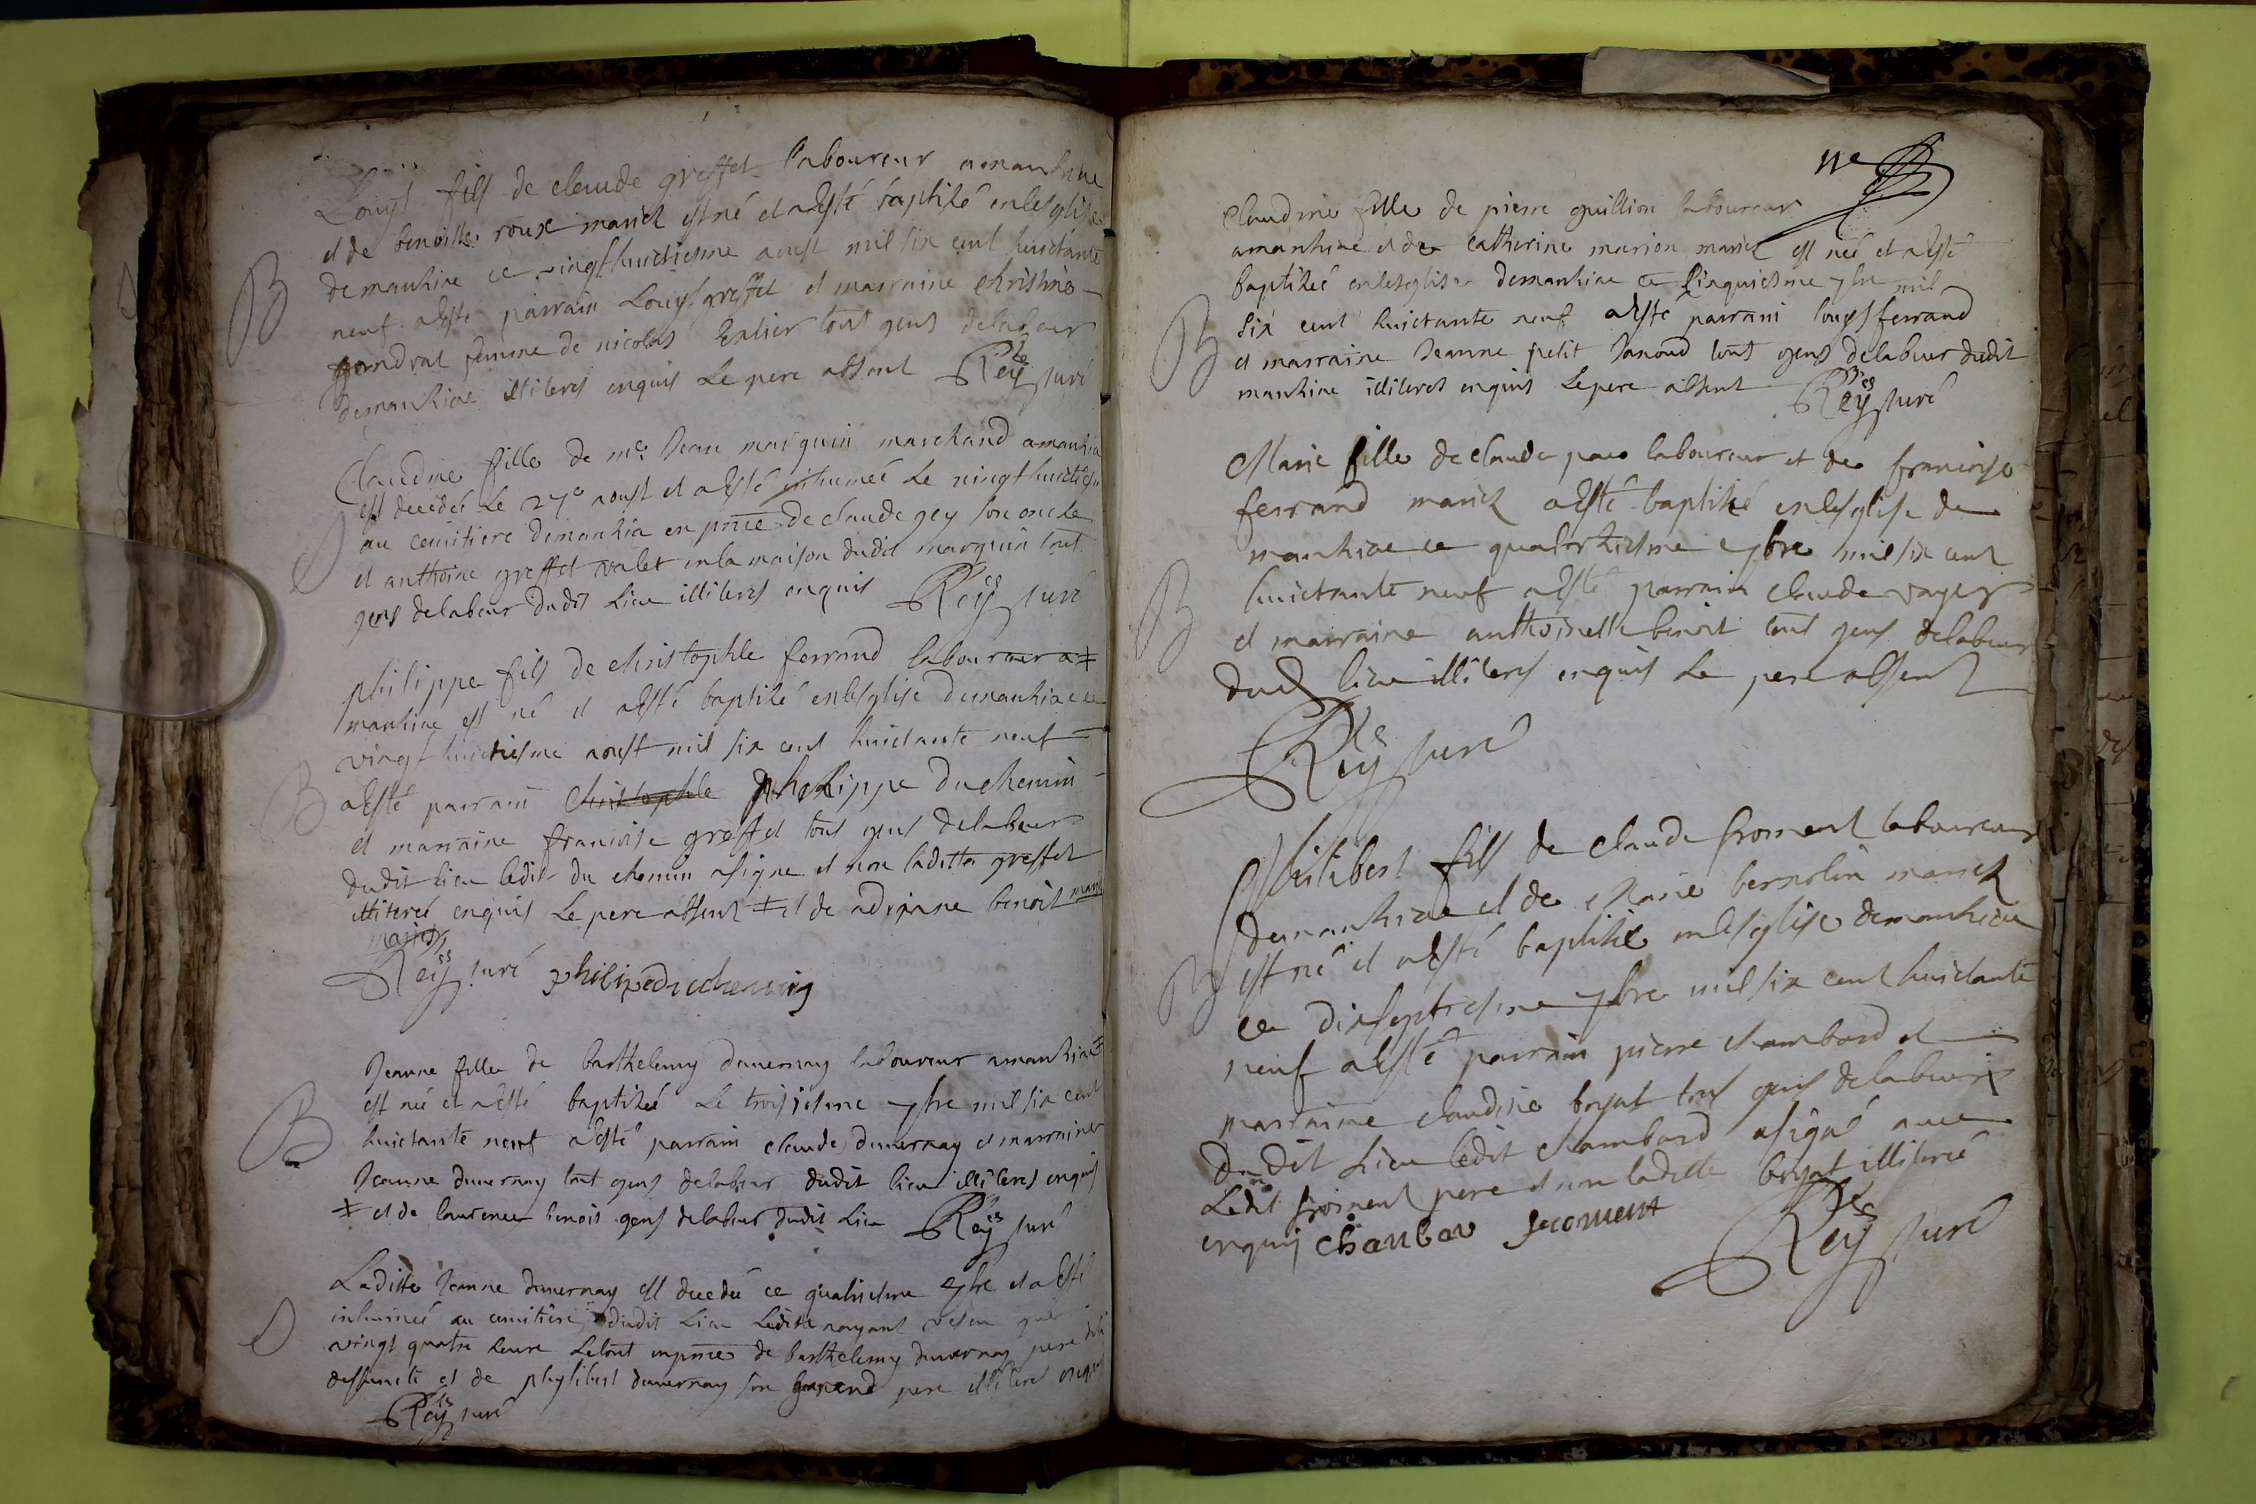 Louys fils de claude greffet laboureur amanhiae
et de benoiste roux mariez est né et aesté baptisé enlesglise
demanhiae ce vingthuictiesme aoust mil six cent huictante
neuf aesté parrain Louys greffet et marraine christine
gondrat femme de nicolas tout gens delabeur
demanhiae illiteres enquis Le pere absent Rey curé
B
Claudine fille de mre Jean marquin marchand amanhia
est decedée Le 27e aoust et aesté inhumée Le vingthuictiesme
au cemitiere demanhia en pnce de claude gey son oncle
et anthoine greffet valet enla maison dudit marquin tout
gens delabeur dudit Lieu illiteres enquis Rey curé
philippe fils de christophle ferrand laboureur a ‡
manhiae est né et aesté baptisé enlesglise demanhiae ce
vingthuictiesme aoust mil six cent huictante neuf
B
aesté parrain christophle philippe duchemin
et marraine francoise greffet tout gens delabeur
dudit Lieu ledit du chemin asigne et non laditte greffet
illiteree enquis Le pere absent ‡ et de adriane benoist mariez
mariez
Rey curé philipeduchemin
Jeanne fille de barthelemy duvernay laboureur amanhiae ‡
est née et aesté baptisée Le troisiesme 7bre mil six cent
B
huictante neuf aesté parrain claude duvernay et marraine
Jeanne duvernay tout gens delabeur dudit lieu illiteres enquis
‡ et de laurence benois gens delabeur dudit Lieu Rey curé
Laditte Jeanne duvernay est decedée ce quatriesme 7bre et a esté
inhumée au cemitiere dudit Lieu Laditte nayant vescu que
vingt quatre heure Letout enpnce de barthelemy duvernay pere
deffuncte et de phylibert duvernay son grand pere illiteres enquis
Rey curé
claudine fille de pierre guillion laboureur
amanhiae et de catherine marion mariez est née et aesté
baptisée enlesglise demanhiae ce cinquiesme 7bre mil
B
six cent huictante neuf aesté parrain louys ferrand
et marraine Jeanne petit Janoud tout gens delabeur dudit
manhiae illiteres enquis Le pere absent Rey curé
Marie fille de claude laboureur et de francoise
ferrand mariez aesté baptisé enlesglise de
manhiae ce quatorziesme 7bre mil six cent
B
huictante neuf aesté parrain claude
et marraine anthoinette benoit tout gens delabeur
dud lieu illiteres enquis Le pere absent
Rey curé
Philibert fils de claude froment laboureur
demanhiae et de marie bernolin mariez
est né et aesté baptisé enlesglise demanhiae
B
ce dixseptiesme 7bre mil six cent huictante
neuf aesté parrain pierre chambard et
marraine claudine boyat tout gens delabeur
dudit Lieu ledit chambard asigné avec
Ledit froment pere et non laditte boyat illiteree
enquis chanbar froment Rey curé